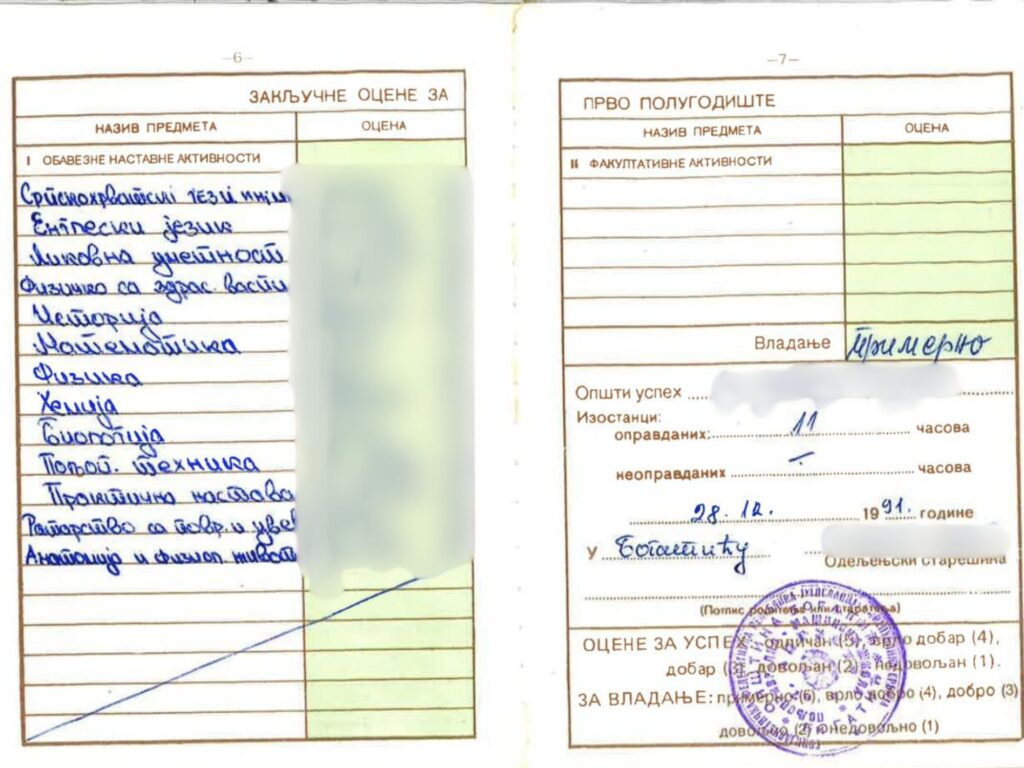 –6–
ЗАКЉУЧНЕ ОЦЕНЕ ЗА
НАЗИВ ПРЕДМЕТА ОЦЕНА
I ОБАВЕЗНЕ НАСТАВНЕ АКТИВНОСТИ
Српскохрватски
Енглески језик
Ликовна уметност
Физичко са здрас. васпи
Историја
Математика
Физика
Хемија
Биологија
Пољоп. техника
Практична настава
Ратарство са повр. и цвећ
Анатомија и физиол. живот
–7–
ПРВО ПОЛУГОДИШТЕ
НАЗИВ ПРЕДМЕТА ОЦЕНА
II ФАКУЛТАТИВНЕ АКТИВНОСТИ
Владање Примерно
Општи успех
Изостанци:
оправданих: 11 часова
неоправданих – часова
28. 12. 1991. године
У Богатићу
Одељењски старешина
(Потпис родитеља или старатеља)
ОЦЕНЕ ЗА УСПЕХ: одличан (5), врло добар (4),
добар (3), довољан (2), недовољан (1).
ЗА ВЛАДАЊЕ: примерно (5), врло добро (4), добро (3)
довољно (2) и недовољно (1)